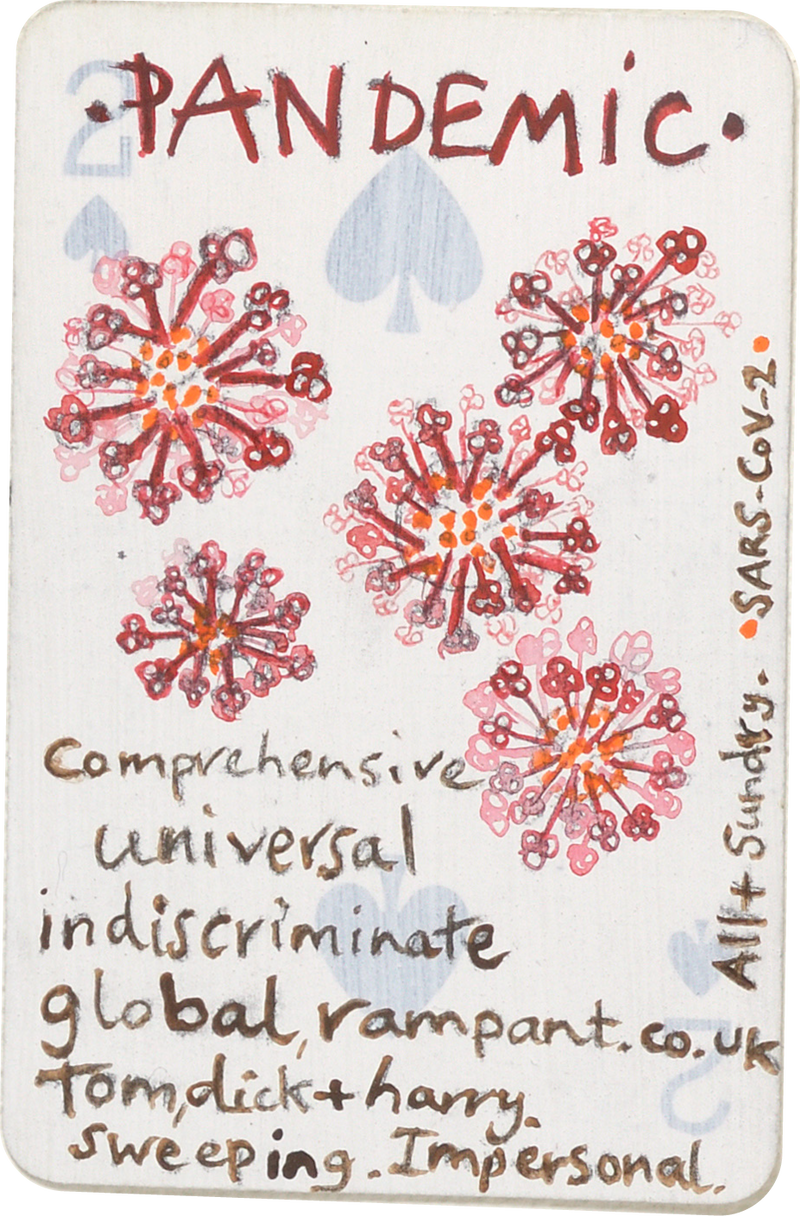 2
·PANDEMIC·
comprehensive
universal
indiscriminate
global, rampant.co.uk
Tom, dick + harry.
sweeping. Impersonal.
All + Sundry. • SARS-CoV-2 •
2